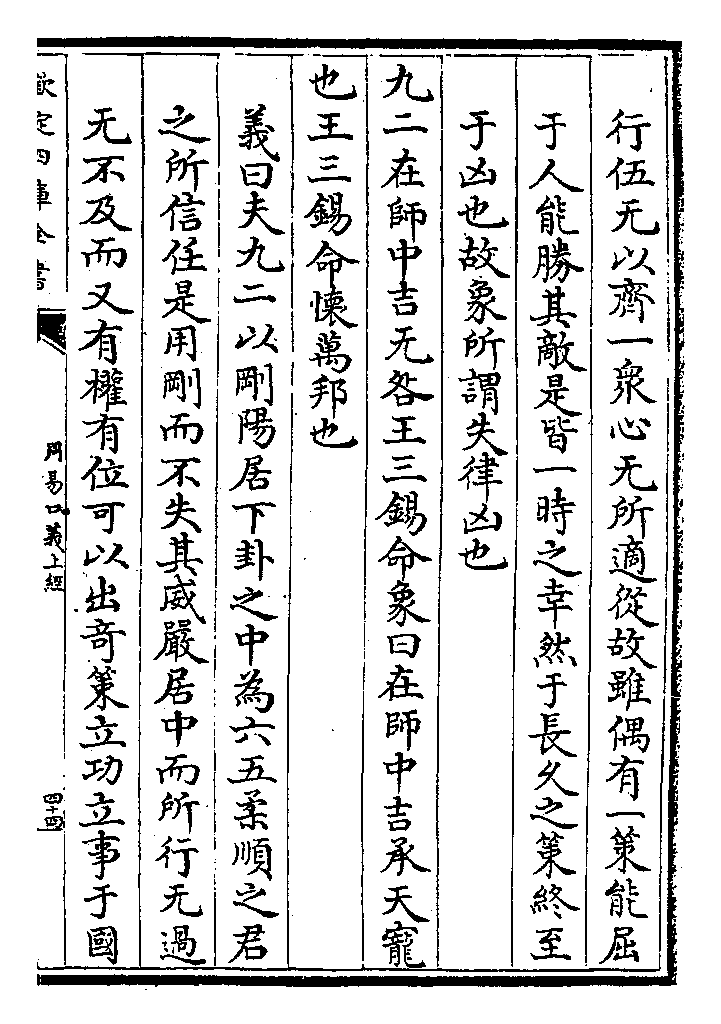 行伍无以齊一衆心无所適從故雖偶有一策能屈
于人能勝其敵是皆一時之幸然于長久之策終至
于凶也故象所謂失律凶也
九二在師中吉无咎王三錫命象曰在師中吉承天寵
也王三錫命懷萬邦也
義曰夫九二以剛陽居下卦之中為六五柔順之君
之所信任是用剛而不失其威嚴居中而所行无過
无不及而又有權有位可以出奇策立功立事于國
欽定四庫全書
周易口義上經
四十四